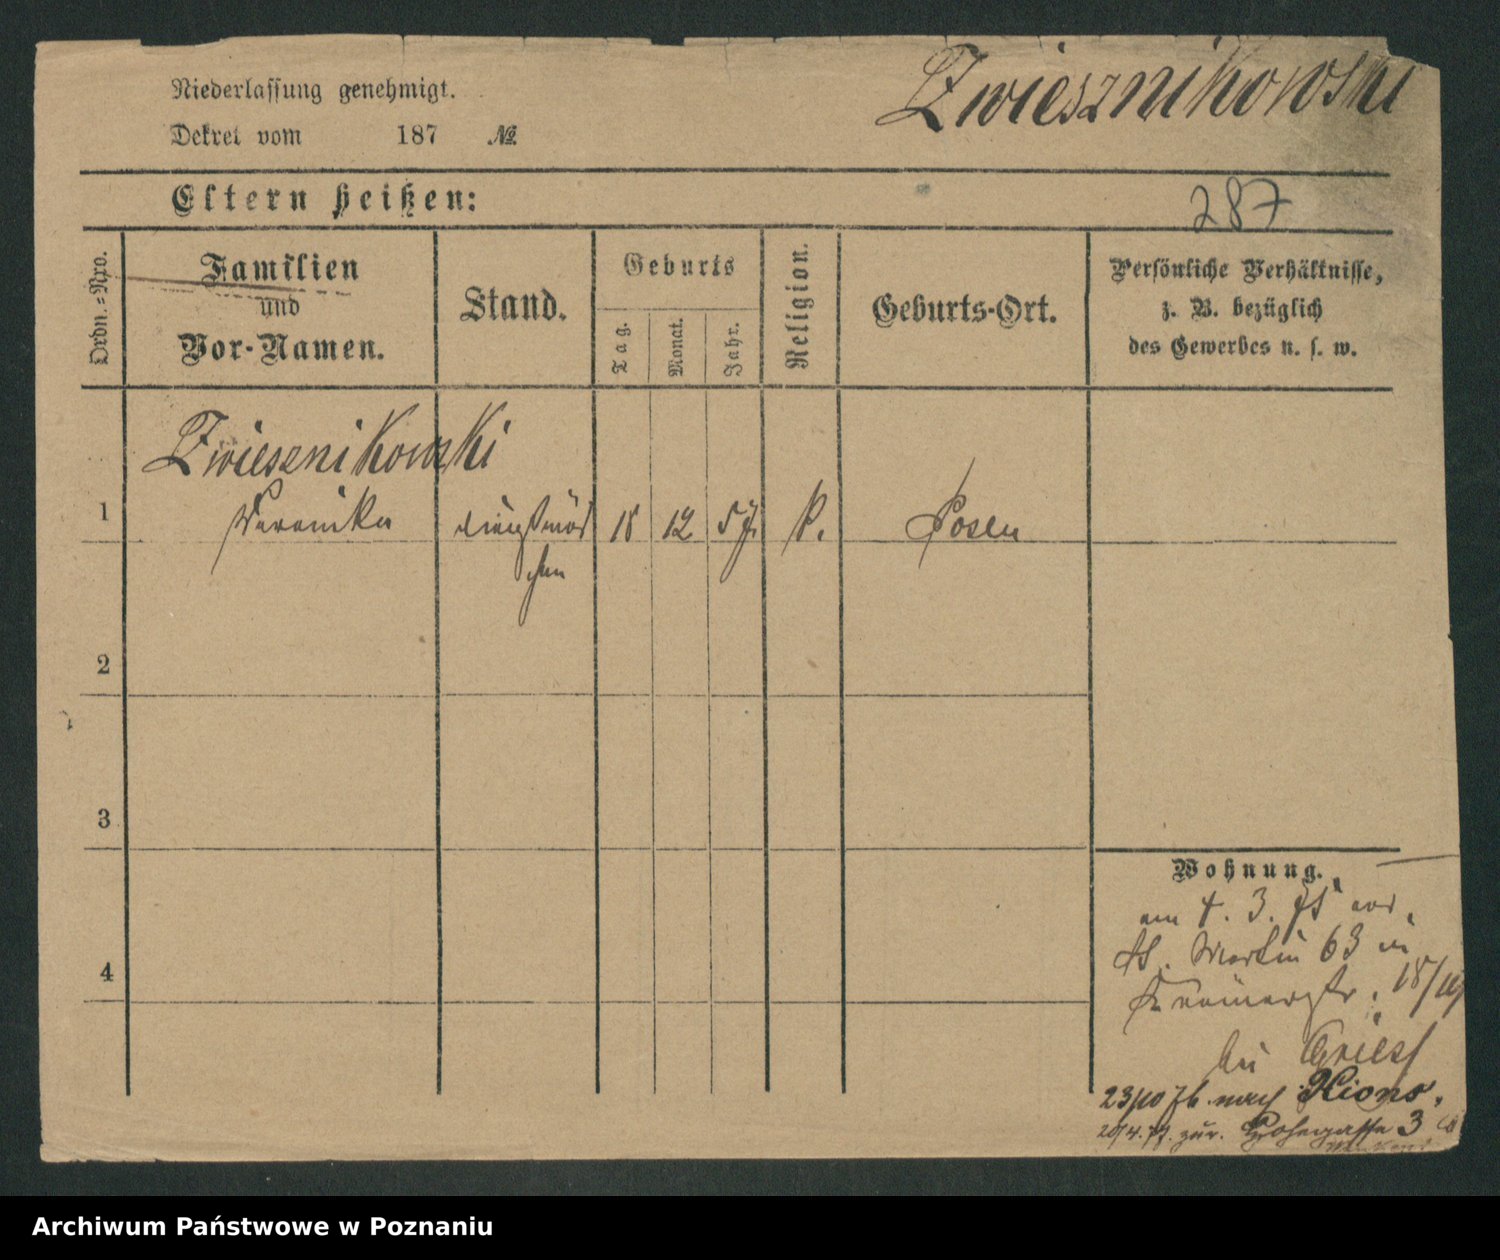 Niederlassung genehmigt.
Zwiesznikowski
Dekret vom 187 №
Eltern heißen:
287
Ordn.=Nro.
Familien
und
Vor-Namen.
Stand.
Geburts
Tag.
Monat.
Jahr.
Religion.
Geburts-Ort.
Persönliche Verhältnisse,
z. B. bezüglich
des Gewerbes u. s. w.
Zwiesznikowski
1 Veronika Dienstmäd 18 12 57. K. Posen
chen
2
3
Wohnung.
am 4. 3. 75 von
St. Martin 63 in
4
18/10
bei Griess
23/10 76 nach Xions.
20/4. 77. zur. 3
Archiwum Państwowe w Poznaniu